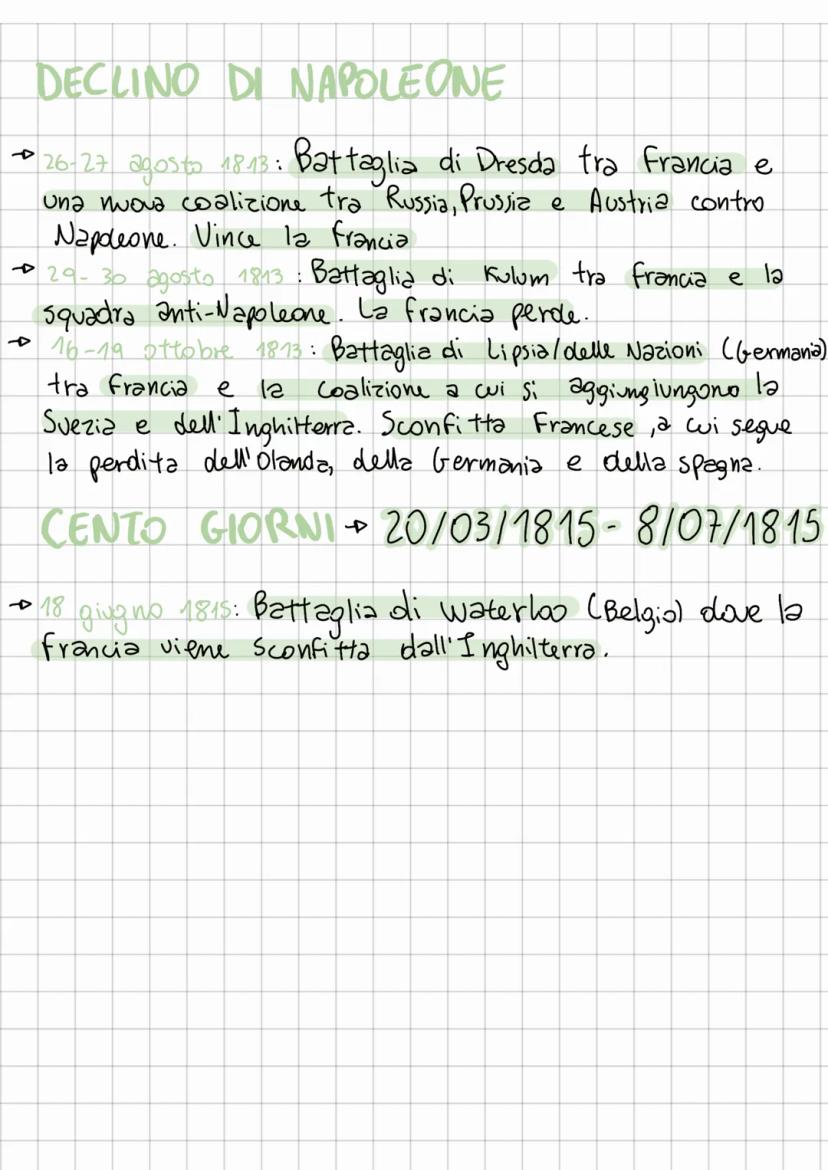 DECLINO DI NAPOLEONE
→ 26-27 agosto 1813: Battaglia di Dresda tra Francia e
una nuova coalizione tra Russia, Prussia e Austria contro
Napoleone. Vince la Francia
→ 29-30 agosto 1813: Battaglia di Kulum tra Francia e la
squadra anti-Napoleone. La Francia perde.
→ 16-19 ottobre 1813: Battaglia di Lipsia/delle Nazioni (Germania)
tra Francia e la coalizione a cui si aggiungiungono la
Svezia e dell'Inghilterra. Sconfitta Francese, a cui segue
la perdita dell'Olanda, della Germania e della spagna.
CENTO GIORNI → 20/03/1815 - 8/07/1815
→ 18 giugno 1815: Battaglia di Waterloo (Belgio) dove la
Francia viene sconfitta dall'Inghilterra.